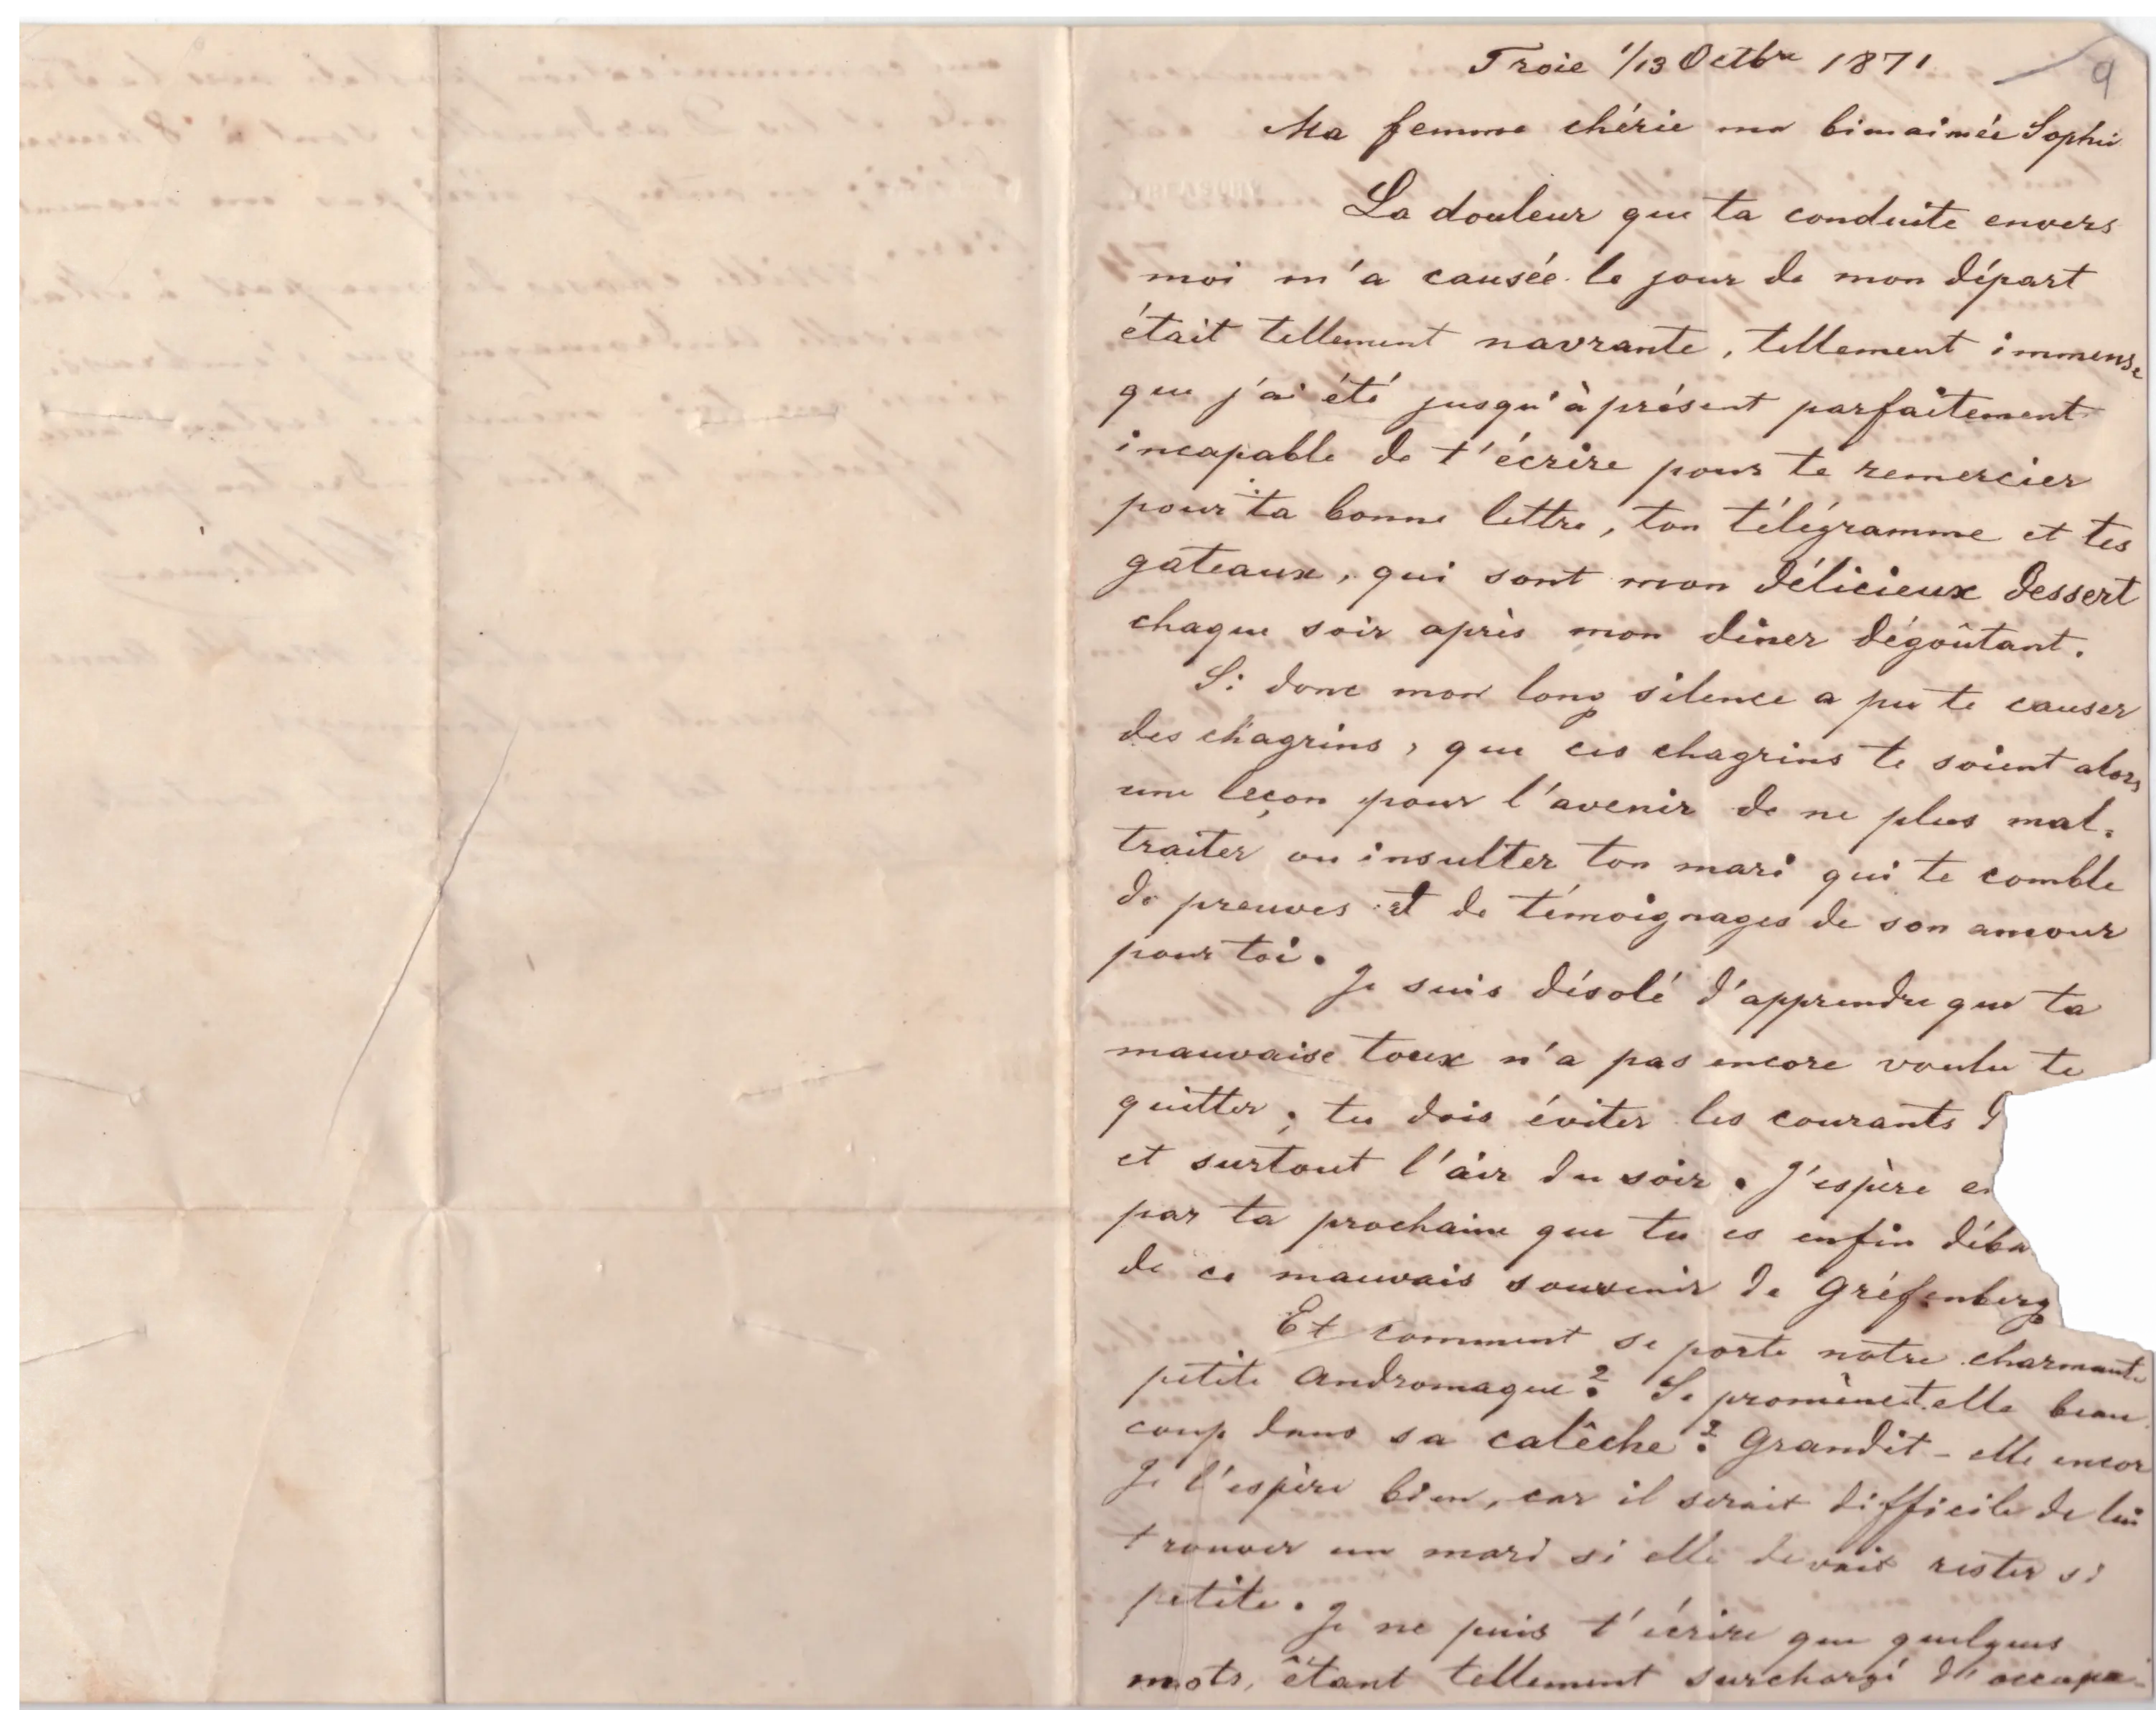 9
Troie 1/13 Octbre 1871
Ma femme chérie ma bienaimée Sophie
La douleur que ta conduite envers
moi m'a causée le jour de mon départ
était tellement navrante, tellement immense
que j'ai été jusqu'à présent parfaitement
incapable de t'écrire pour te remercier
pour ta bonne lettre, ton télégramme et tes
gateaux, qui sont mon délicieux dessert
chaque soir après mon dîner dégoûtant.
Si donc mon long silence a pu te causer
des chagrins, que ces chagrins te soient alors
une leçon pour l'avenir de ne plus mal-
traiter ou insulter ton mari qui te comble
de preuves et de témoignages de son amour
pour toi.
Je suis désolé d'apprendre que ta
mauvaise toux n'a pas encore voulu te
quitter; tu dois éviter les courants d
et surtout l'air du soir. J'espère en
par ta prochaine que tu es enfin déba
de ce mauvais souvenir de Gréfenberg
Et comment se porte notre charmante
petite Andromaque? Se promènet-elle beau-
coup dans sa calêche? Grandit-elle encor
Je l'espère bien, car il serait difficile de lui
trouver un mari si elle devait rester si
petite.
Je ne puis t'écrire que quelques
mots, étant tellement surchargé d'occupa-